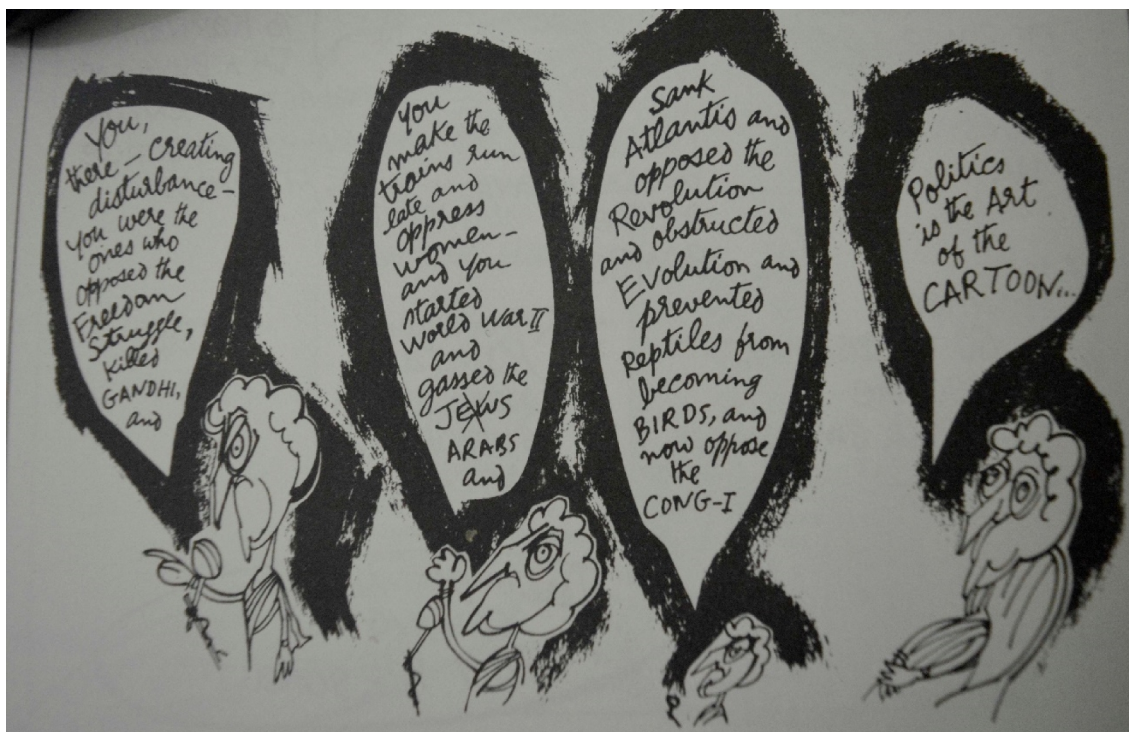 You,
there – creating
disturbance –
you were the
ones who
opposed the
Freedom
Struggle,
killed
GANDHI,
and
you
make the
trains run
late and
oppress
women –
and you
started
World War II
and
gassed the
JEWS
ARABS
and
Sank
Atlantis and
opposed the
Revolution
and obstructed
Evolution and
prevented
Reptiles from
becoming
BIRDS, and
now oppose
the
CONG-I
Politics
is the Art
of the
CARTOON...